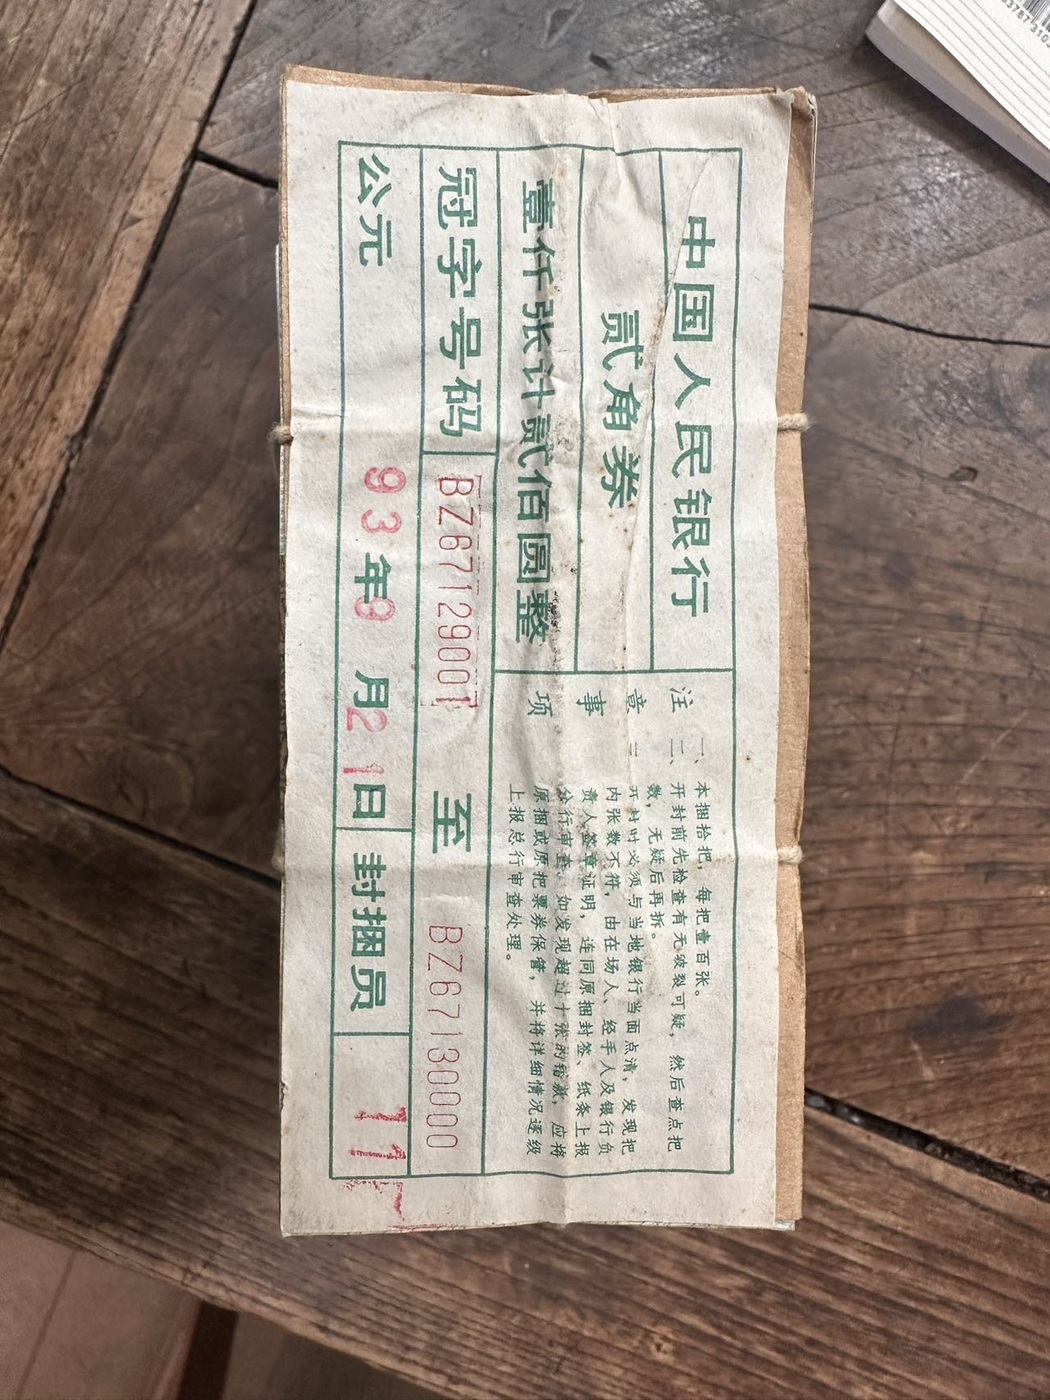 中国人民银行
贰角券
壹仟张计贰佰圆整
注意事项
一、本捆拾把，每把壹百张。
二、开封前先检查有无破裂可疑，然后查点把数，无疑后再拆。
三、开封时必须与当地银行当面点清，发现把
内张数不符，由在场人、经手人及银行负
责人签章证明，连同原捆封签、纸条上报
分行审查。如发现超过十张的错款，应将
原捆或原把票券保管，并将详细情况逐级
上报总行审查处理。
冠字号码 BZ67129001 至 BZ67130000
公元 93年9月21日 封捆员